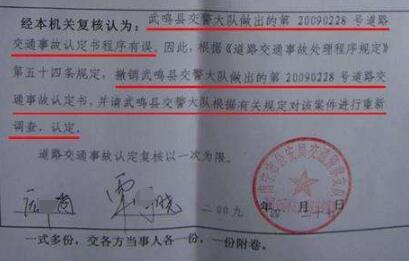 经本机关复核认为：武鸣县交警大队做出的第 20090228 号道路
交通事故认定书程序有误。因此，根据《道路交通事故处理程序规定》
第五十四条规定，撤销武鸣县交警大队做出的第 20090228 号道路交
通事故认定书，并请武鸣县交警大队根据有关规定对该案件进行重新
调查、认定。
道路交通事故认定复核以一次为限。
二〇〇九 年 四 月 二十七
一式多份，交各方当事人各一份，一份附卷。